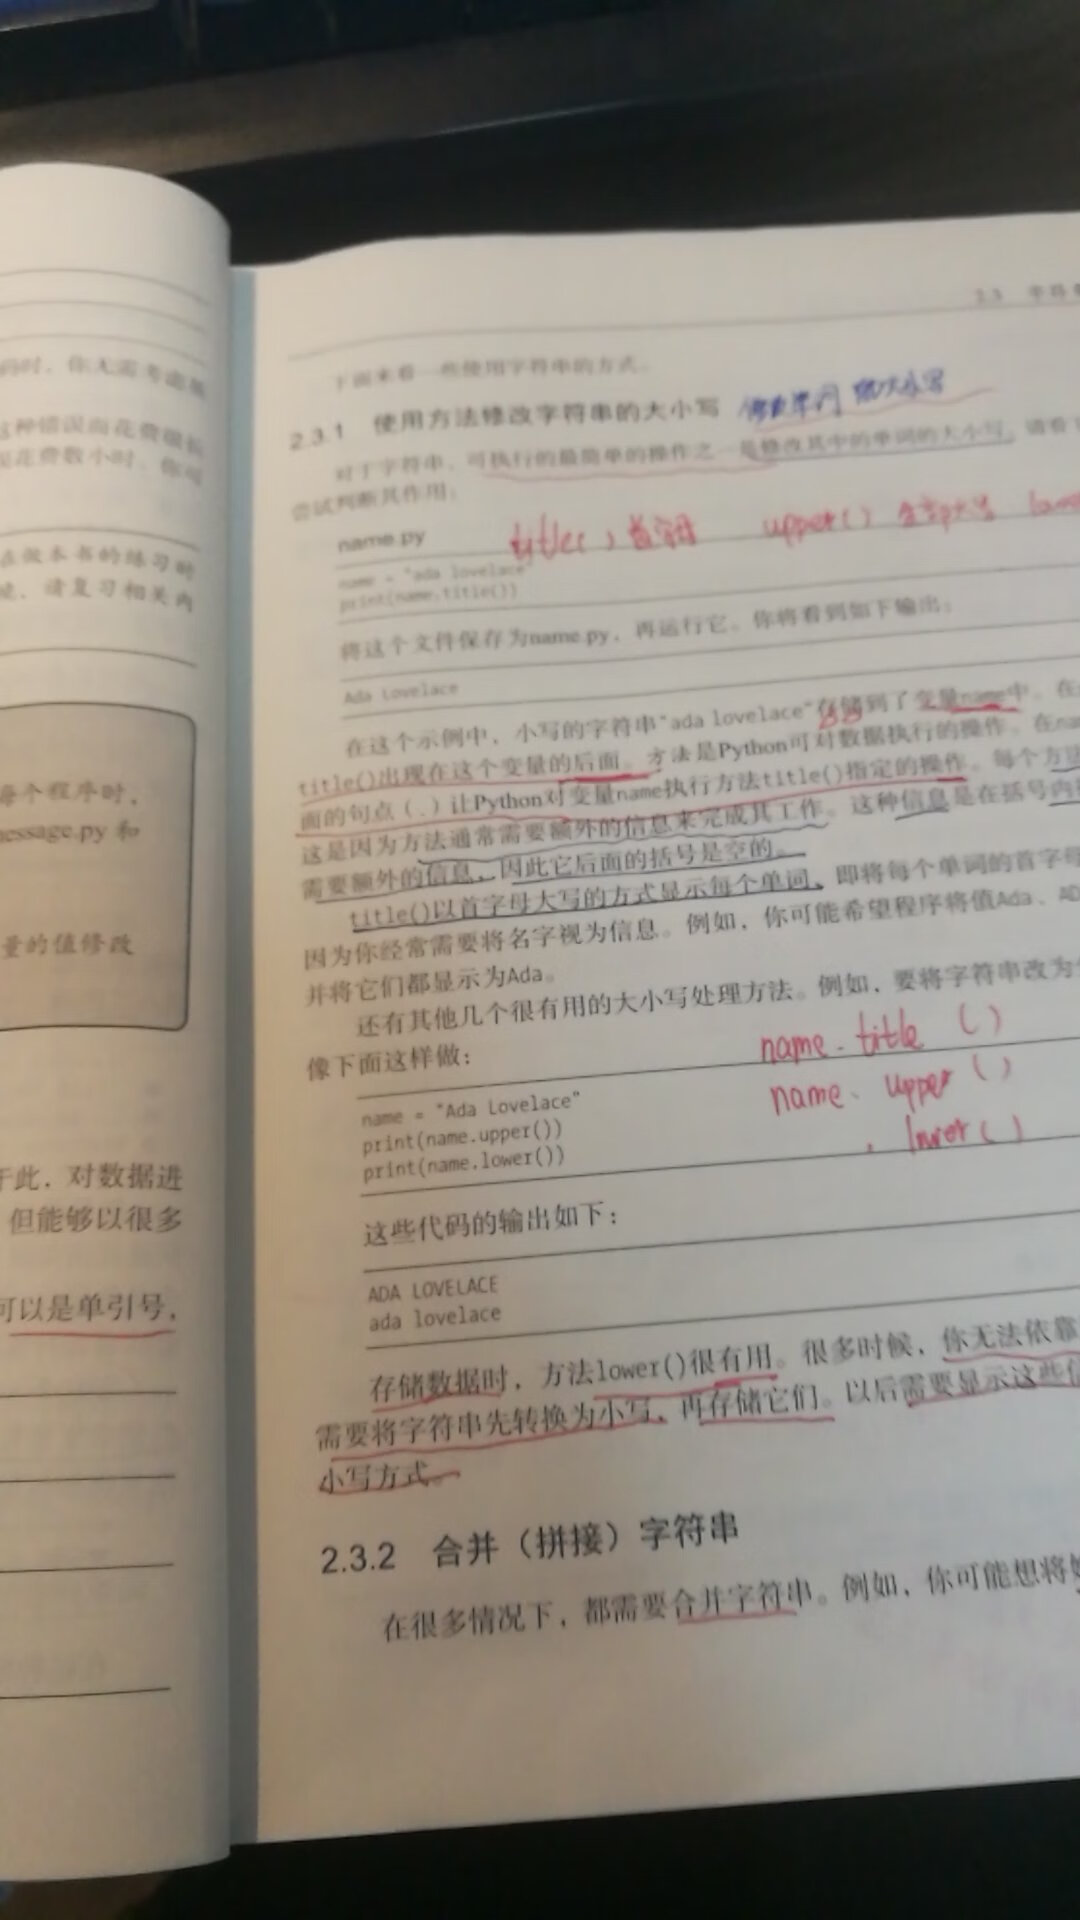 码时，你无需考虑
这种错误而花费很长
在做本书的练习时
请复习相关内
每个程序时，
message.py 和
量的值修改
于此，对数据进
但能够以很多
可以是单引号，
2.3 字符
下面来看一些使用字符串的方式。
2.3.1 使用方法修改字符串的大小写 修改单词
对于字符串，可执行的最简单的操作之一是修改其中的单词的大小写。请看
尝试判断其作用：
name.py title() 首字母 upper() 全部大写
name = "ada lovelace"
print(name.title())
将这个文件保存为name.py，再运行它。你将看到如下输出：
Ada Lovelace
在这个示例中，小写的字符串"ada lovelace"存储到了变量name中。在
title()出现在这个变量的后面。方法是Python可对数据执行的操作。在na
面的句点（.）让Python对变量name执行方法title()指定的操作。每个方法
这是因为方法通常需要额外的信息来完成其工作。这种信息是在括号内
需要额外的信息，因此它后面的括号是空的。
title()以首字母大写的方式显示每个单词，即将每个单词的首字母
因为你经常需要将名字视为信息。例如，你可能希望程序将值Ada、AD
并将它们都显示为Ada。
还有其他几个很有用的大小写处理方法。例如，要将字符串改为
像下面这样做：
name. title ()
name = "Ada Lovelace"
name. upper ()
print(name.upper())
. lower()
print(name.lower())
这些代码的输出如下：
ADA LOVELACE
ada lovelace
存储数据时，方法lower()很有用。很多时候，你无法依靠
需要将字符串先转换为小写，再存储它们。以后需要显示这些信
小写方式。
2.3.2 合并（拼接）字符串
在很多情况下，都需要合并字符串。例如，你可能想将